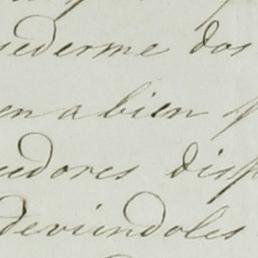 cederme dos
en a bien
cedores disp
deviendoles